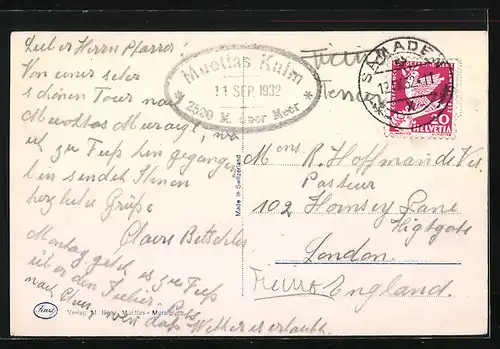 Lieber Herrn Pfarrer!
Von einer sehr
schönen Tour nach
Muottas Muraigl, wo
wir zu Fuss hin gegangen
sind senden Ihnen
herzliche Grüße
Claire Betschler
Montag geht es zu Fuß
über den Julier-
nach Chur, wenn das Wetter es erlaubt.
Muottas Kulm
11 SEP. 1932
2520 M. über Meer
SAMADEN
HELVETIA
20
Made in Switzerland
Mons. R. Hoffmann de Vis
Pasteur
102 Hornsey Lane
Higtgate
London.
England.
Verlag
Muottas - Muraigl